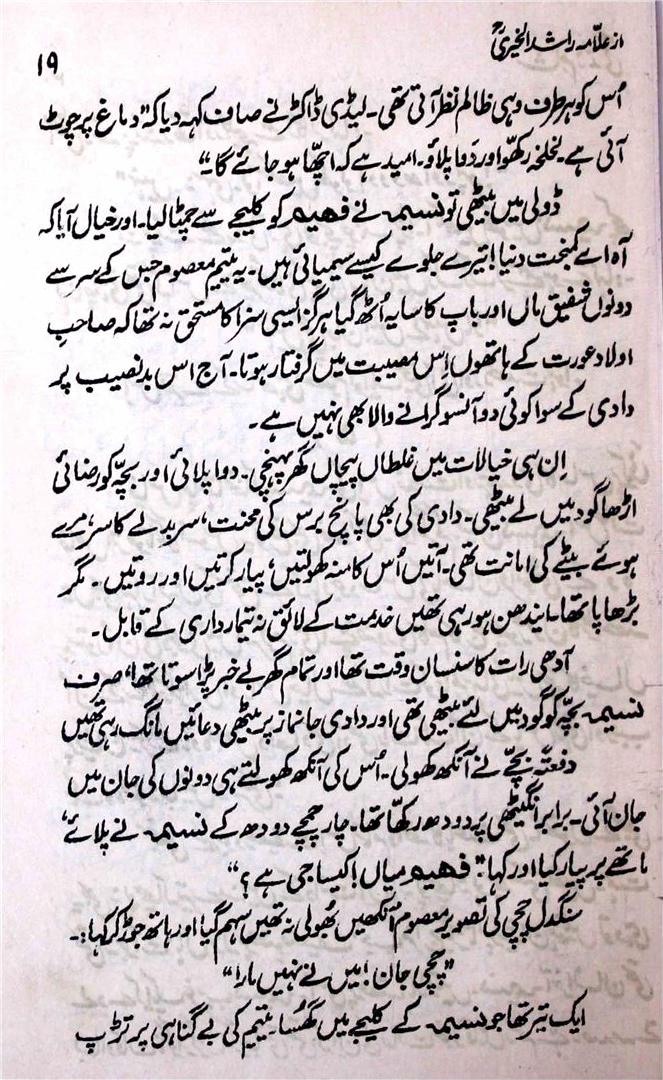 از علامہ راشد الخیریؒ
۱۹
اُس کو ہر طرف وہی ظالم نظر آتی تھی۔ لیڈی ڈاکٹر نے صاف کہہ دیا کہ "دماغ پر چوٹ
آئی ہے۔ لخلخہ رکھو اور دَوا پلاؤ۔ امید ہے کہ اچھا ہو جائے گا۔"
ڈولی میں بیٹھی تو نسیمہ نے فہیم کو کلیجے سے چمٹا لیا۔ اور خیال آیا کہ
آہ اے کمبخت دنیا! تیرے جلوے کیسے سیمیائی ہیں۔ یہ یتیم معصوم جس کے سر سے
دونوں شفیق ماں اور باپ کا سایہ اُٹھ گیا ہرگز ایسی سزا کا مستحق نہ تھا کہ صاحبِ
اولاد عورت کے ہاتھوں اِس مصیبت میں گرفتار ہوتا۔ آج اس بدنصیب پر
دادی کے سوا کوئی دو آنسو گرانے والا بھی نہیں ہے۔
اِن ہی خیالات میں غلطاں پیچاں گھر پہنچی۔ دوا پلائی اور بچہ کو رضائی
اڑھا گود میں لے بیٹھی۔ دادی کی بھی پانچ برس کی محنت، سر بدلے کا سر، مرے
ہوئے بیٹے کی امانت تھی۔ آتیں اُس کا منہ کھولتیں، پیار کرتیں اور روتیں۔ مگر
بڑھاپا تھا۔ ایندھن ہو رہی تھیں خدمت کے لائق نہ تیمارداری کے قابل۔
آدھی رات کا سنسان وقت تھا اور تمام گھر بے خبر پڑا سوتا تھا، صرف
نسیمہ بچہ کو گود میں لئے بیٹھی تھی اور دادی جانماز پر بیٹھی دعائیں مانگ رہی تھیں
دفعتہً بچے نے آنکھ کھولی۔ اُس کی آنکھ کھولتے ہی دونوں کی جان میں
جان آئی۔ برابر انگیٹھی پر دودھ رکھا تھا۔ چار چمچے دودھ کے نسیمہ نے پلائے،
ماتھے پر پیار کیا اور کہا: "فہیم میاں! کیسا جی ہے؟"
سنگدل چچی کی تصویر معصوم آنکھیں بھولی نہ تھیں سہم گیا! اور ہاتھ جوڑ کر کہا:۔
"چچی جان! میں نے نہیں مارا"
ایک تیر تھا جو نسیمہ کے کلیجے میں گھُسا۔ یتیم کی بے گناہی پر تڑپ